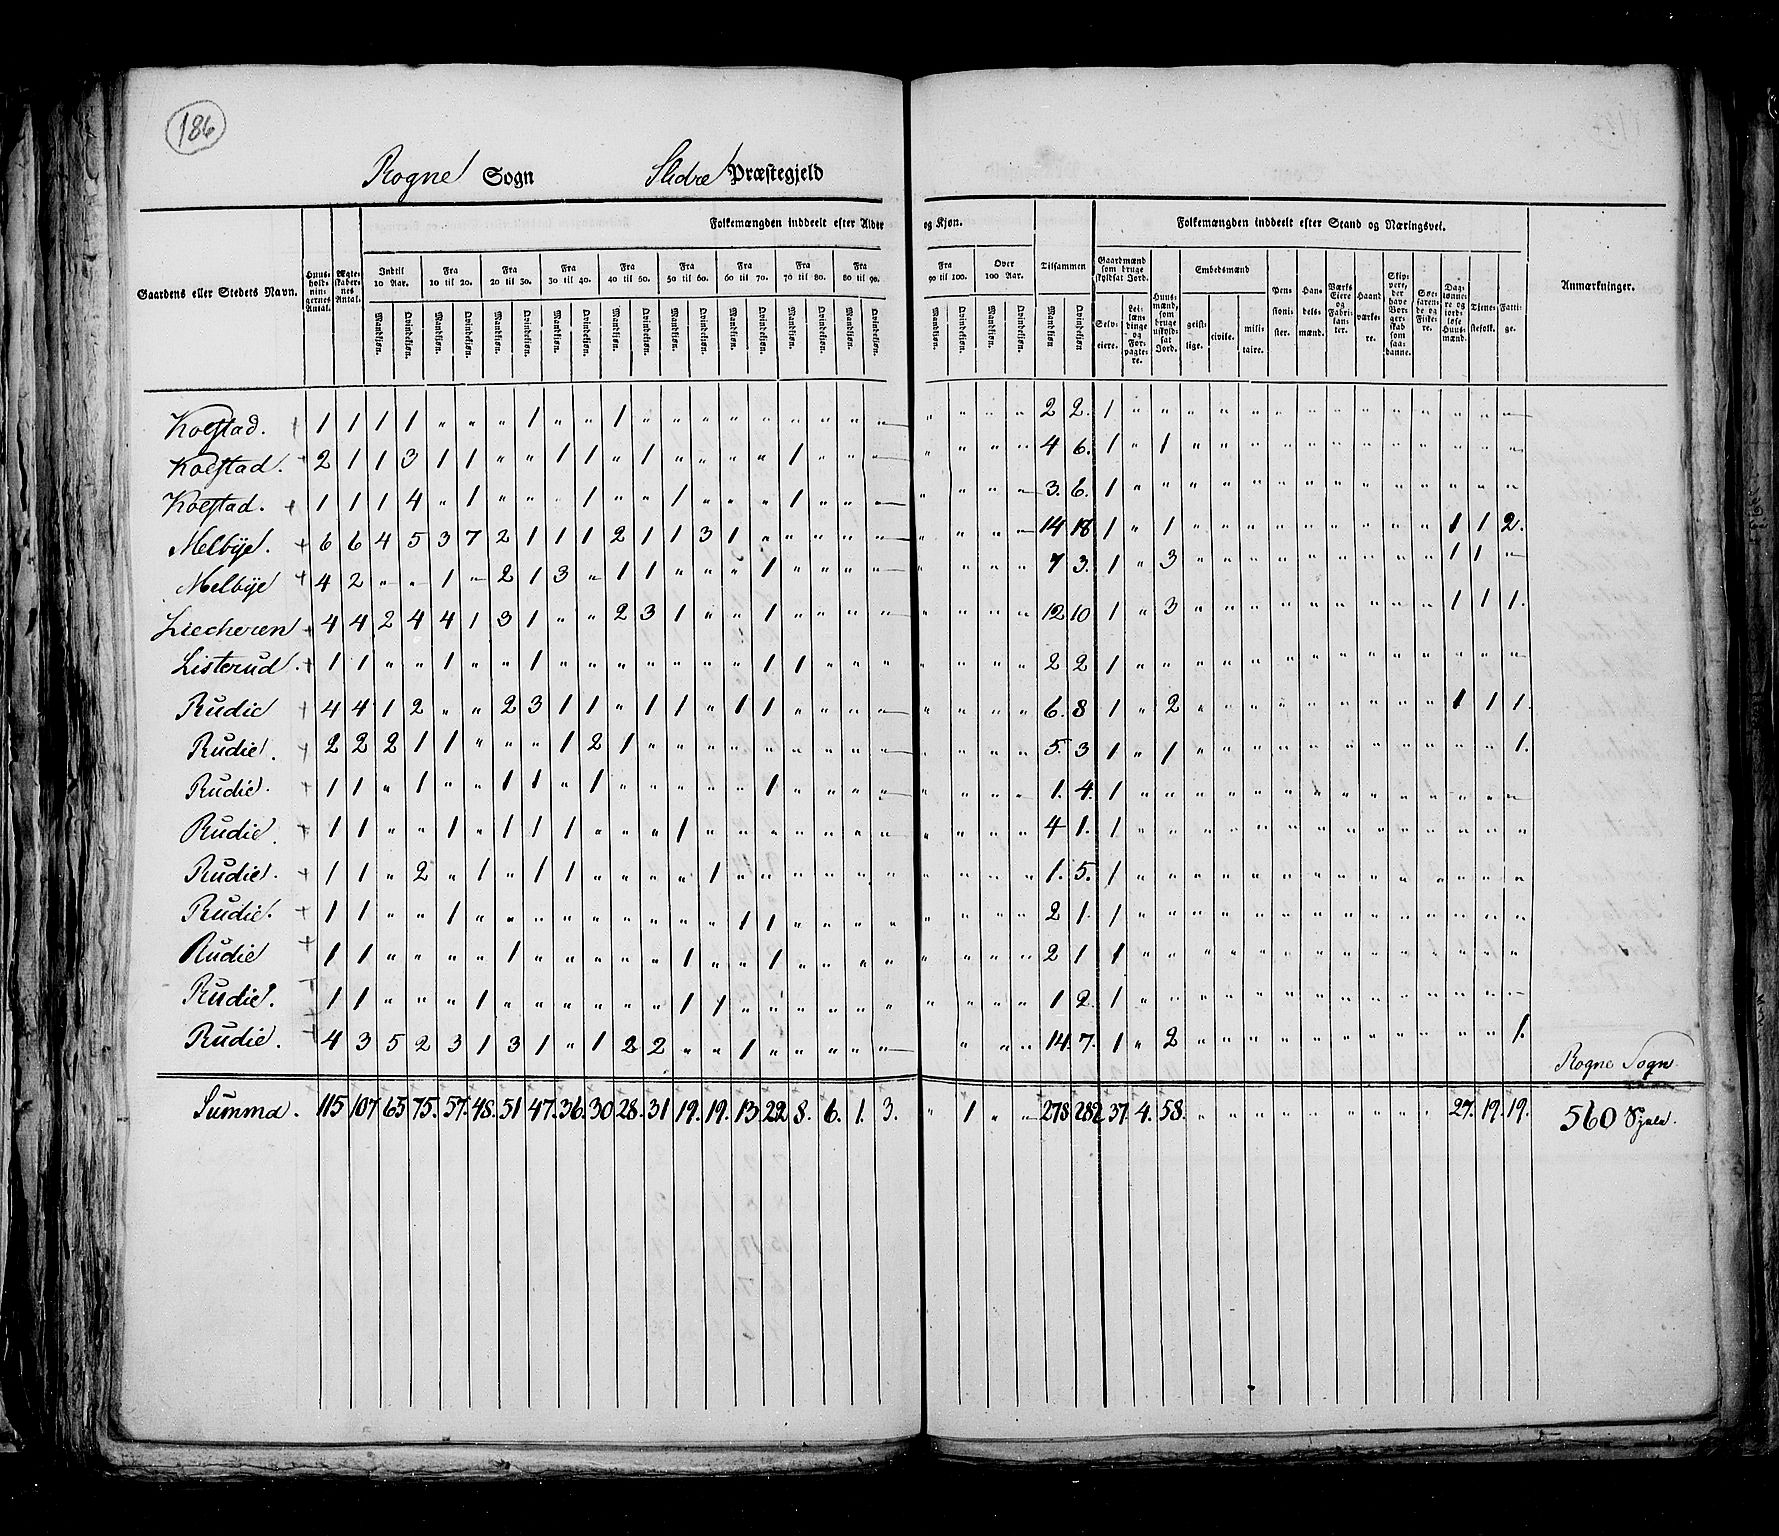 186
Rogne Sogn Slidre Præstegjeld
Folkemængden inddeelt efter Alder og Kjøn. Folkemængden inddeelt efter Stand og Næringsvei.
Gaardens eller Stedets Navn. Huusholdningernes Antal. Ægteskabernes Antal. Indtil 10 Aar. Fra 10 til 20. Fra 20 til 30. Fra 30 til 40. Fra 40 til 50. Fra 50 til 60. Fra 60 til 70. Fra 70 til 80. Fra 80 til 90. Fra 90 til 100. Over 100 Aar. Tilsammen Gaardmænd som bruge skyldsat Jord. Huusmænd, som bruge uskyldsat Jord. Embedsmænd Pensionister. Handelsmænd. Værks Eiere og Fabrikanter. Haandværkere. Skippere, der have Borgerskab som saadanne. Søefarende og Fiskere. Daglønnere og jordløse Huusmænd. Tienestefolk. Fattige. Anmærkninger.
Mandkjøn. Qvindekjøn. Mandkjøn. Qvindekjøn. Mandkjøn. Qvindekjøn. Mandkjøn. Qvindekjøn. Mandkjøn. Qvindekjøn. Mandkjøn. Qvindekjøn. Mandkjøn. Qvindekjøn. Mandkjøn. Qvindekjøn. Mandkjøn. Qvindekjøn. Mandkjøn. Qvindekjøn. Mandkjøn. Qvindekjøn. Mandkjøn Qvindekjøn Selveiere. Leilændinge og Forpagtere. geistlige. civile. militaire.
Kolstad. + 1 1 1 1 „ „ „ 1 „ „ 1 „ „ „ „ „ „ „ „ „ „ „ „ 2 2. 1 „ „ „ „ „ „ „ „ „ „ „ „ „ „
Kolstad. + 2 1 1 3 1 1 „ „ 1 1 „ 1 „ „ „ „ 1 „ „ „ „ „ „ 4 6. 1 „ 1 „ „ „ „ „ „ „ „ „ „ „ „
Kolstad. + 1 1 1 4 „ 1 „ „ „ 1 „ „ 1 „ „ „ 1 „ „ „ „ „ „ 3. 6. 1 „ „ „ „ „ „ „ „ „ „ „ „ „ „
Melbye. + 6 6 4 5 3 7 2 1 1 1 2 1 1 3 1 „ „ „ „ „ „ „ „ 14 18. 1 „ 1 „ „ „ „ „ „ „ „ „ 1 1 2.
Melbye + 4 2 „ „ 1 „ 2 1 3 „ 1 1 „ „ „ 1 „ „ „ „ „ „ „ 7 3. 1 „ 3 „ „ „ „ „ „ „ „ „ 1 1 „
Liecheren + 4 4 2 4 4 1 3 1 „ „ 2 3 1 „ „ 1 „ „ „ „ „ „ „ 12 10 1 „ 3 „ „ „ „ „ „ „ „ „ 1 1 1.
Listerud. + 1 1 „ „ 1 „ „ 1 „ „ „ „ „ „ „ 1 1 „ „ „ „ „ „ 2 2 1 „ „ „ „ „ „ „ „ „ „ „ „ „ „
Rudie + 4 4 1 2 „ „ 2 3 1 1 „ 1 1 „ 1 1 „ „ „ „ „ „ „ 6. 8 1 „ 2 „ „ „ „ „ „ „ „ „ 1 1 1.
Rudie. + 2 2 2 1 1 „ „ „ 1 2 1 „ „ „ „ „ „ „ „ „ „ „ „ 5. 3 1 „ 1 „ „ „ „ „ „ „ „ „ „ „ 1.
Rudie. + 1 1 „ 1 „ „ 1 1 „ 1 „ „ „ „ „ 1 „ „ „ „ „ „ „ 1. 4. 1 „ „ „ „ „ „ „ „ „ „ „ „ „ „
Rudie. + 1 1 „ „ 1 „ 1 1 1 „ „ „ 1 „ „ „ „ „ „ „ „ „ „ 4 1. 1 „ „ „ „ „ „ „ „ „ „ „ „ „ „
Rudie. + 1 1 „ 2 „ 1 „ 1 1 „ „ „ „ 1 „ „ „ „ „ „ „ „ „ 1. 5. 1 „ „ „ „ „ „ „ „ „ „ „ „ „ „
Rudie. + 1 1 „ „ 1 „ „ „ „ „ „ „ „ „ 1 1 „ „ „ „ „ „ „ 2 1. 1 „ „ „ „ „ „ „ „ „ „ „ „ „ „
Rudie + 1 1 „ „ „ „ 1 „ „ „ „ „ 1 „ „ 1 „ „ „ „ „ „ „ 2 1 1 „ „ „ „ „ „ „ „ „ „ „ „ „ „
Rudie. + 1 1 „ „ „ 1 „ „ „ „ „ „ 1 1 „ „ „ „ „ „ „ „ „ 1 2. 1 „ „ „ „ „ „ „ „ „ „ „ „ „ „
Rudie. + 4 3 5 2 3 1 3 1 „ 1 2 2 „ „ 1 „ „ „ „ „ „ „ „ 14. 7. 1 „ 2 „ „ „ „ „ „ „ „ „ „ „ 1.
Rogne Sogn
Summa. 115 107 65 75. 57. 48. 51 47. 36. 30 28. 31 19. 19. 13. 22 8. 6. 1. 3. „ 1 „ „ 278 282 37. 4. 58. „ „ „ „ „ „ „ „ „ 27. 19. 19. 560 Sjæle.